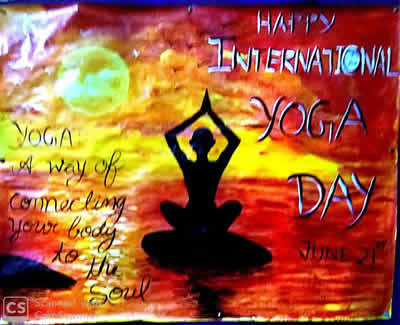 HAPPY
INTERNATIONAL
YOGA
DAY
JUNE 21ST
YOGA
A way of
connecting
your body
to the
Soul
CS
Scanned with
CamScanner